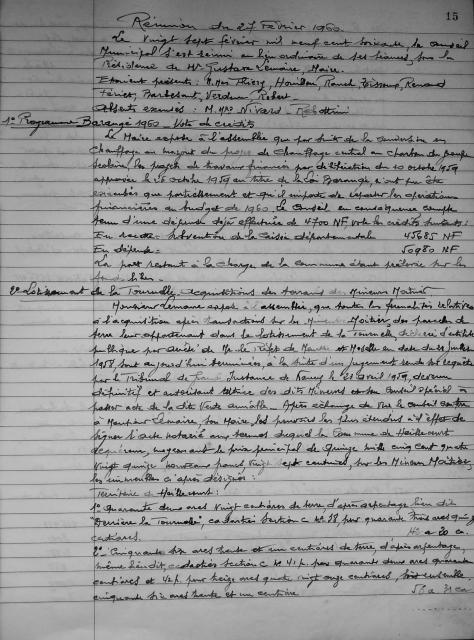 15
Réunion du 27 Février 1960
Le Vingt sept février mil neuf cent soixante, le Conseil
Municipal s'est réuni au lieu ordinaire de ses séances, sous la
Présidence de Mr Gustave Lemoine, Maire.
Etaient présents : Thiery, Houillon, Bisson, Renard
Février, Barbesant, Verdun, Robert
Absents excusés : M. Nivard
1° Programme Barangé 1960 - Vote de crédits
Le Maire expose à l'assemblée que par suite de la
chauffage au mazout du projet de chauffage central au charbon du Groupe
Scolaire, le projet de travaux financés par délibération du 10 octobre 1959
approuvée le 26 octobre 1959 au titre de la Loi Barangé, n'ont pu être
exécutés que partiellement et qu'il importe de reporter les opérations
financières au budget de 1960. Le Conseil en conséquence compte
tenu d'une dépense déjà effectuée de 4700 NF vote les crédits suivants :
En recette : Subvention de la Caisse départementale 45685 NF
En dépense 50980 NF
La part restant à la charge de la commune étant prélevée sur les
fonds libres.
2° Lotissement de la Tournelle, acquisitions des terrains des Mineurs
Monsieur Lemoine expose à l'assemblée, que toutes les formalités relatives
à l'acquisition après transactions sur les Mineurs, des parcelles de
terre leur appartenant dans le lotissement de la Tournelle déclaré d'utilité
publique par Arrêté de Mr le Préfet de Meurthe et Moselle en date du Juillet
1958, sont aujourd'hui terminées, à la suite d'un jugement rendu sur requête
par le Tribunal de Grande Instance de Nancy le 29 avril 1959, devenu
définitif et autorisant la tutrice des dits Mineurs et son Conseil spécial à
passer acte de la dite Vente amiable. Après échange de vue le conseil confère
à Monsieur Lemoine, son Maire, les pouvoirs les plus étendus à l'effet de
signer l'acte notarié aux termes duquel la Commune de Heillecourt
acquéreur, moyennant le prix principal de Quinze mille cinq cent quatre
Vingt quinze nouveaux francs Vingt sept centimes, sur les Mineurs
les immeubles ci après désignés :
Territoire de Heillecourt :
1° Quarante deux ares Vingt centiares de terre d'après arpentage lieu dit
"Derrière la Tournelle", cadastrés Section C N° 38, pour quarante trois ares cinq
centiares.
2° Cinquante six ares trente et un centiares de terre, d'après arpentage,
même lieudit, cadastrés section C N° 41 p. pour quarante deux ares quarante
centiares et 42 p. pour seize ares quatre vingt onze centiares, soit ensemble
cinquante six ares trente et un centiares